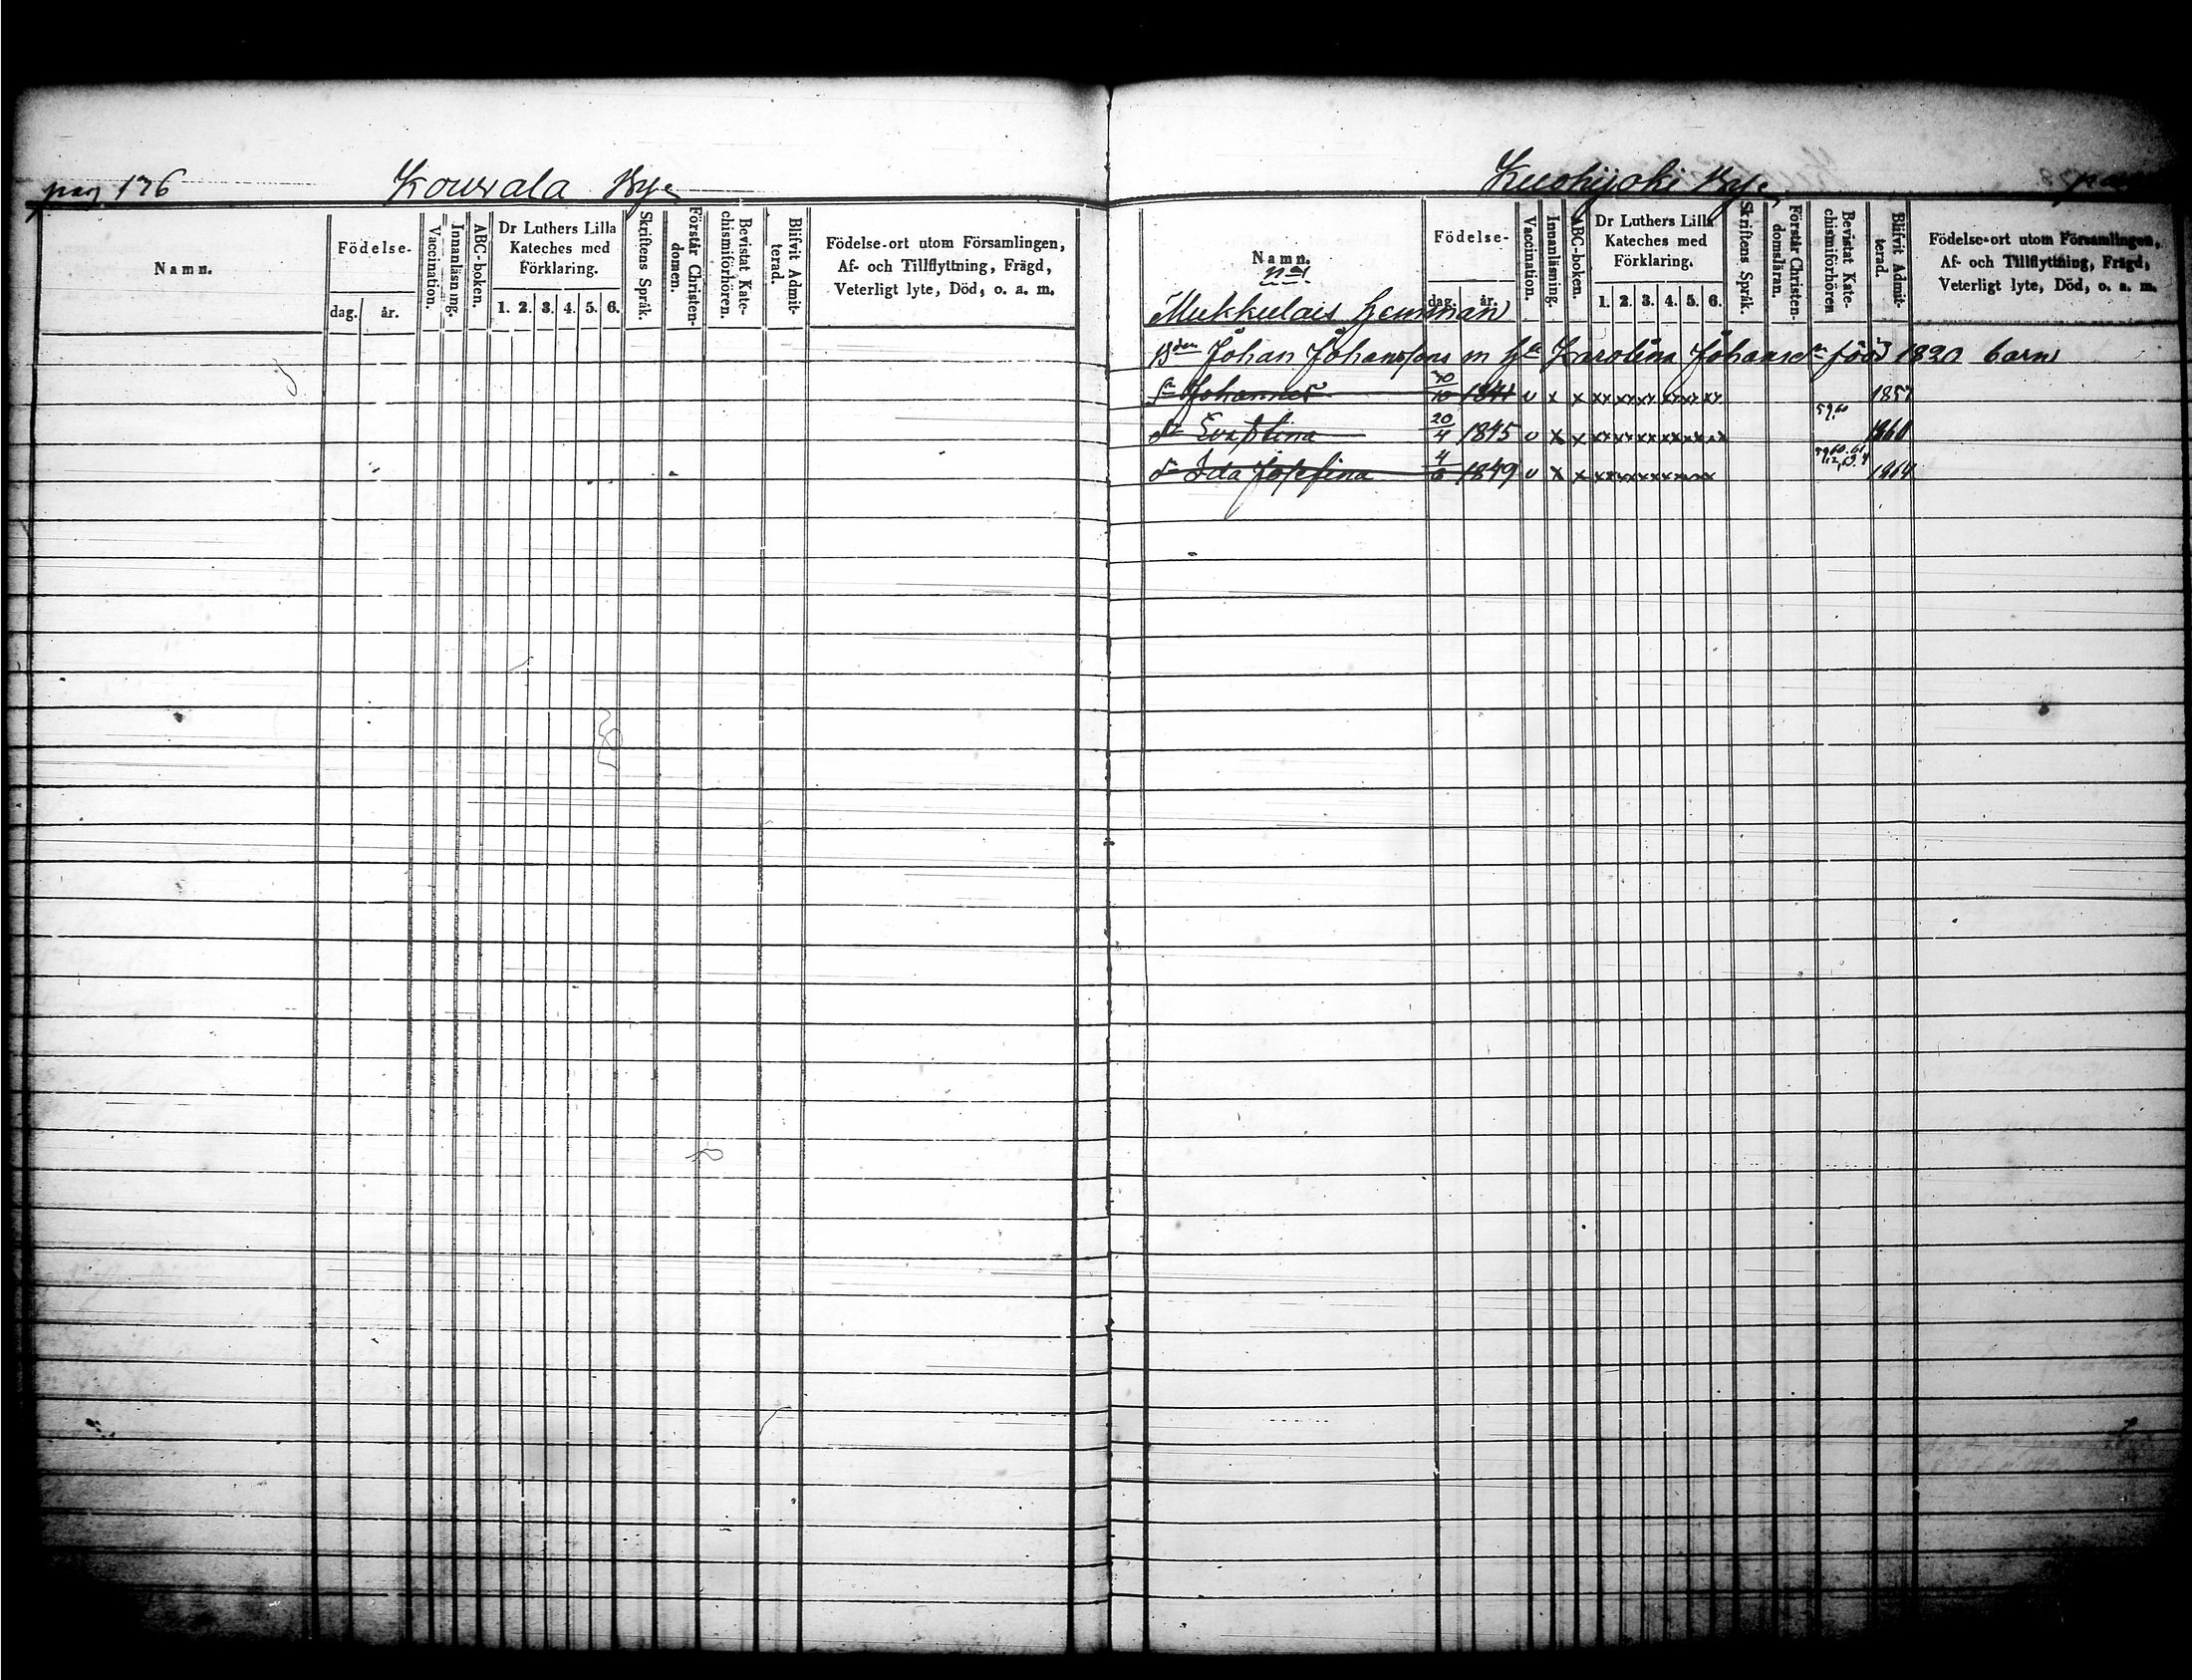 pag 136 Kouvala By
Namn.
Födelse-
dag. år.
Vaccination.
Innanläsning.
ABC-boken.
Dr Luthers Lilla
Kateches med
Förklaring.
1. 2. 3. 4. 5. 6.
Skriftens Språk.
Förstår Christen-
domen.
Bevistat Kate-
chismiförhören.
Blifvit Admit-
terad.
Födelse-ort utom Församlingen,
Af- och Tillflyttning, Frägd,
Veterligt lyte, Död, o. a. m.
Kuohijoki By
Namn.
Födelse-
dag. år.
Vaccination.
Innanläsning.
ABC-boken.
Dr Luthers Lilla
Kateches med
Förklaring.
1. 2. 3. 4. 5. 6.
Skriftens Språk.
Förstår Christen-
domsläran.
Bevistat Kate-
chismiförhören
Blifvit Admit-
terad.
Födelse-ort utom Församlingen,
Af- och Tillflyttning, Frägd,
Veterligt lyte, Död, o. a. m.
No 1
Mukkulais hemman
Bden Johan Johanssons m ha Karolina Johansdr född 1820 barn
sn Johannes 30/10 1841 v x x xx xx xx xx xx xx 1857
dr Eva Stina 20/4 1845 v x x xx xx xx xx xx xx 59,60 1860
dr Ida Josefina 4/6 1849 v x x xx xx xx xx xx xx 1864